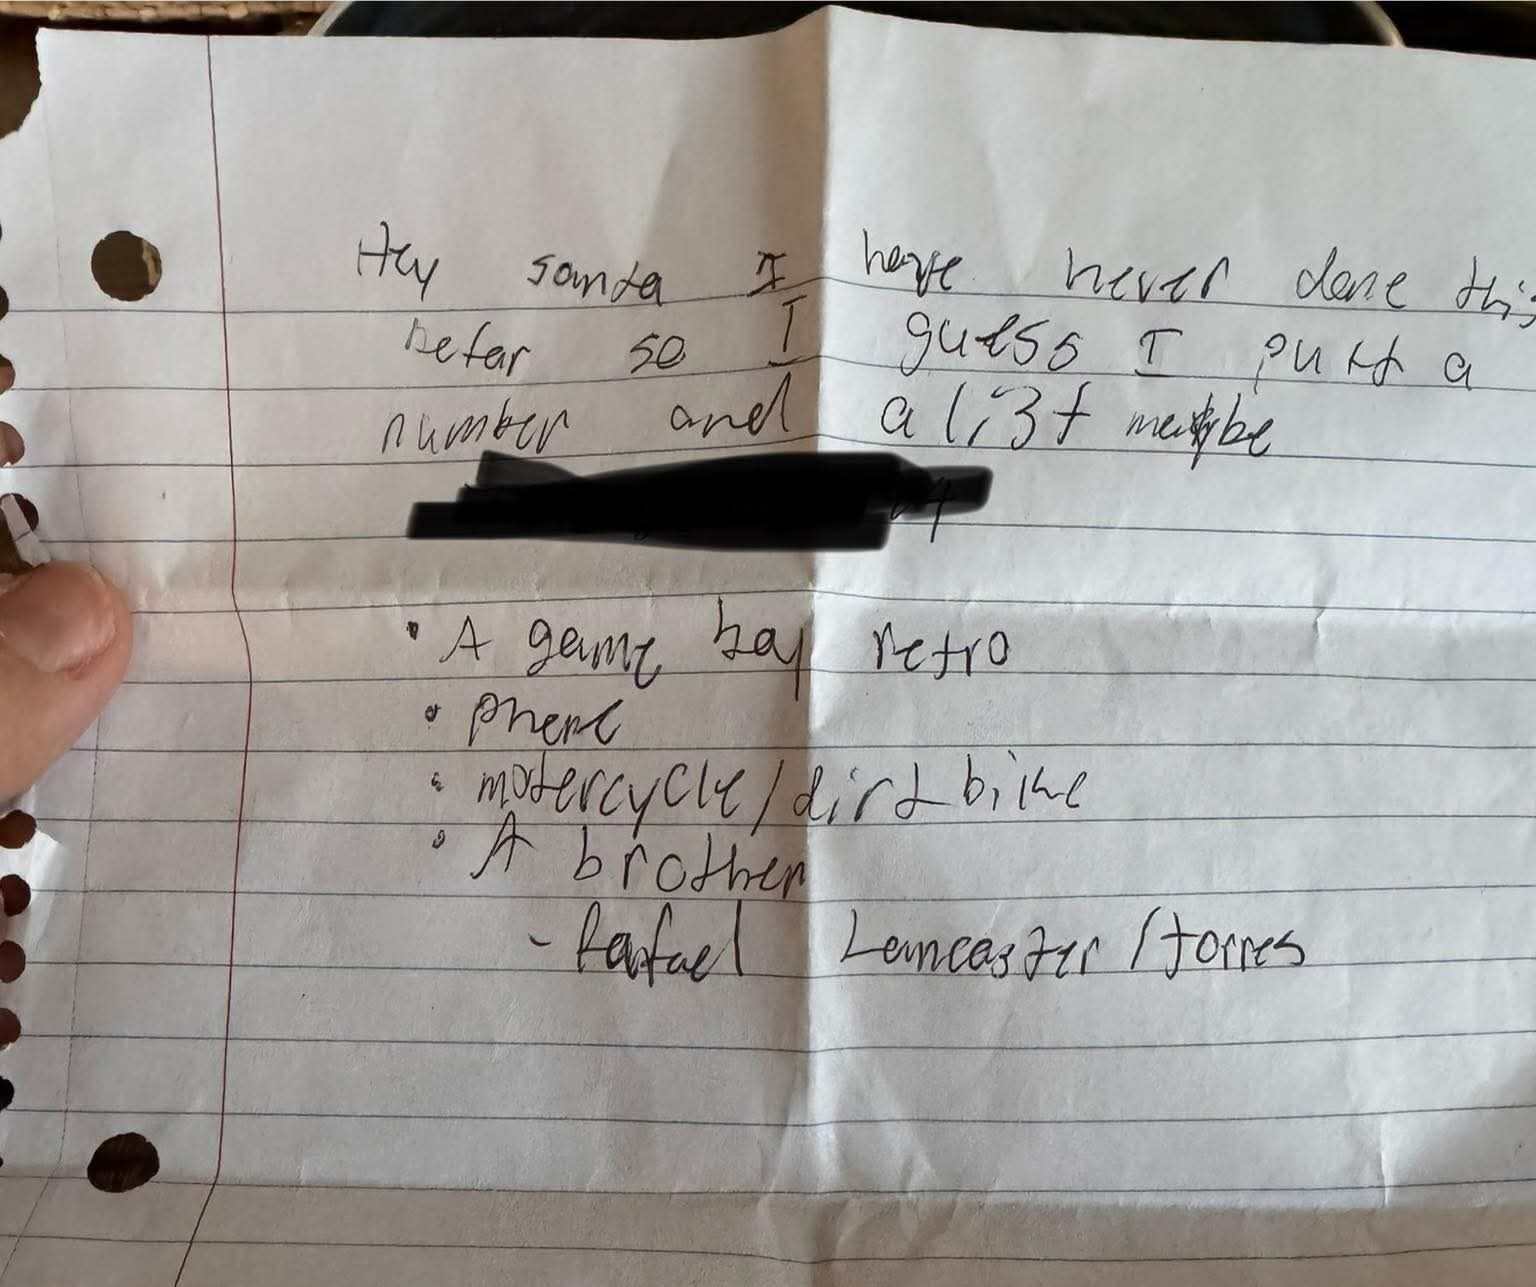 Hey santa I have never done this
befor so I guess I putt a
number and a list maybe
4
• A game bay retro
• phone
• motercycle/dirt bike
• A brother
- Rafael Lancaster/torres